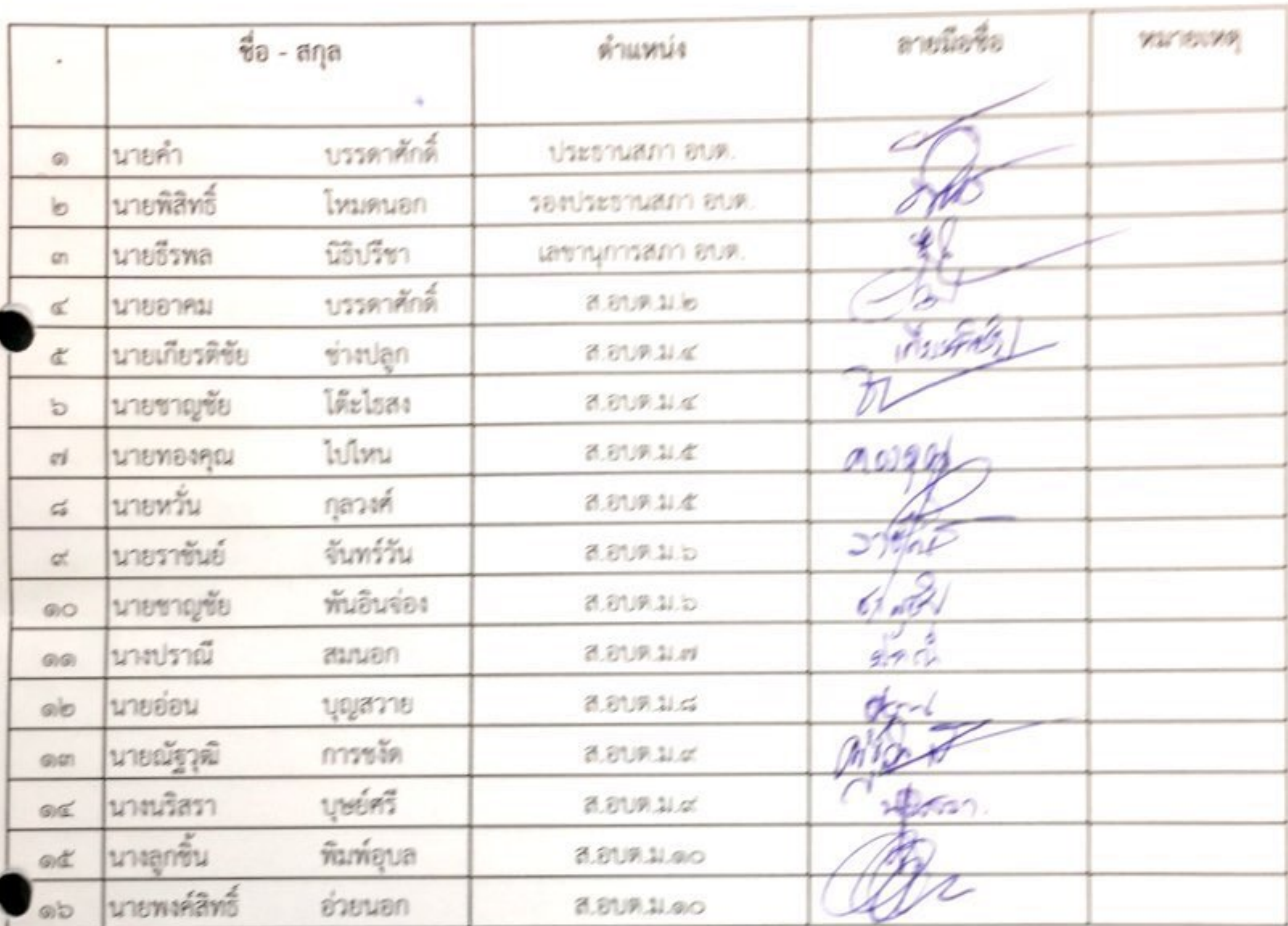 ชื่อ - สกุล ตำแหน่ง ลายมือชื่อ หมายเหตุ
๑ นายคำ บรรดาศักดิ์ ประธานสภา อบต.
๒ นายพิสิทธิ์ โหมดนอก รองประธานสภา อบต.
๓ นายธีรพล นิธิปรีชา เลขานุการสภา อบต.
๔ นายอาคม บรรดาศักดิ์ ส.อบต.ม.๒
๕ นายเกียรติชัย ช่างปลูก ส.อบต.ม.๔ เกียรติชัย
๖ นายชาญชัย โต๊ะไธสง ส.อบต.ม.๔
๗ นายทองคุณ ไปไหน ส.อบต.ม.๕ ทองคุณ
๘ นายหวั่น กุลวงศ์ ส.อบต.ม.๕
๙ นายราชันย์ จันทร์วัน ส.อบต.ม.๖
๑๐ นายชาญชัย พันอินจ่อง ส.อบต.ม.๖
๑๑ นางปราณี สมนอก ส.อบต.ม.๗
๑๒ นายอ่อน บุญสวาย ส.อบต.ม.๘
๑๓ นายณัฐวุฒิ การชงัด ส.อบต.ม.๙
๑๔ นางนริสรา บุษย์ศรี ส.อบต.ม.๙ นริสรา
๑๕ นางลูกชิ้น พิมพ์อุบล ส.อบต.ม.๑๐
๑๖ นายพงค์สิทธิ์ อ่วยนอก ส.อบต.ม.๑๐